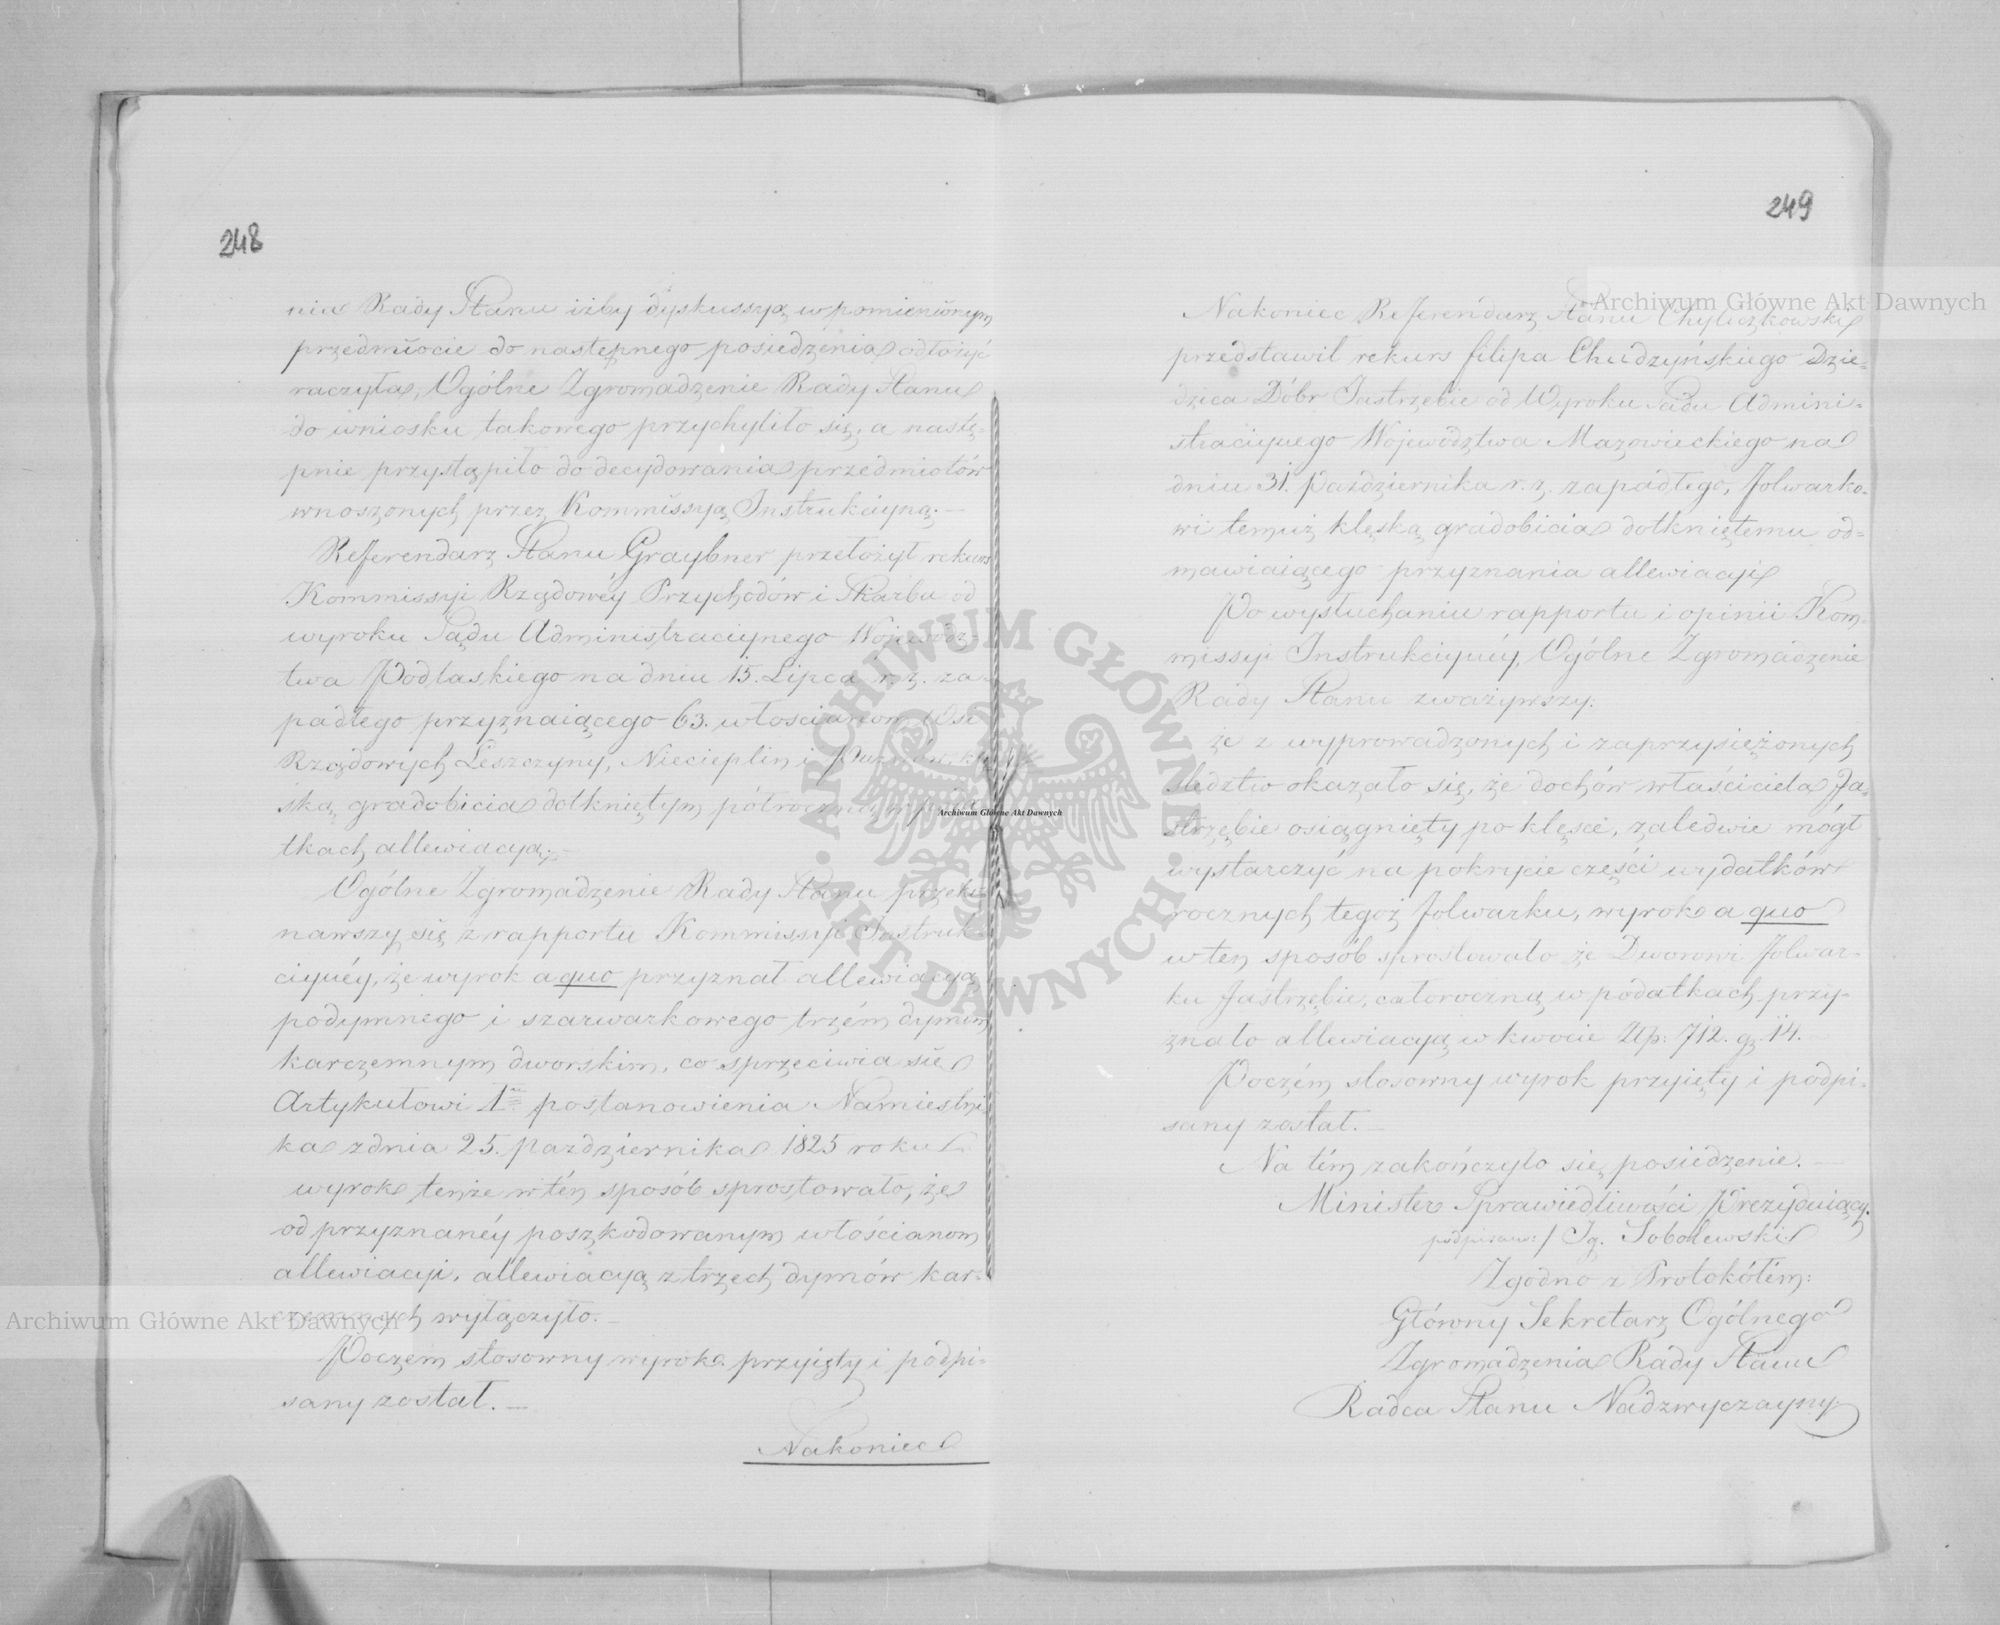 248
nia Rady Stanu iżby dyskussyą w pomienionym
przedmiocie do następnego posiedzenia odłożyć
raczyła, Ogólne Zgromadzenie Rady Stanu
do wniosku takowego przychyliło się, a nastę-
pnie przystąpiło do decydowania przedmiotów
wnoszonych przez Kommissyą Instrukcyiną. —
Refferendarz Stanu Graybner przełożył rekurs
Kommissyi Rządowéy Przychodów i Skarbu od
wyroku Sądu Administracyinego Wojewódz-
twa Podlaskiego na dniu 15. Lipca r. z. za-
padłego przyznaiącego 63. włościanom Wsi
Rządowych Leszczyny, Niecieplin i klę-
ską gradobicia dotkniętym półroczną w poda-
tkach allewiacyą. —
Ogólne Zgromadzenie Rady Stanu przeko-
nawszy się z rapportu Kommissyi Instruk-
cyinéy, że wyrok a quo przyznał allewiacyą
podymnego i szarwarkowego trzém dymom
karczemnym dworskim, co sprzeciwia się
Artykułowi 1mu postanowienia Namiestni-
ka z dnia 25. Października 1825 roku
wyrok tenże w tén sposób sprostowało, że
od przyznanéy poszkodowanym włościanom
allewiacyi, allewiacyą z trzech dymów kar-
czemnych wyłączyło. —
Poczém stosowny wyrok przyięty i podpi-
sany został. —
Nakoniec
249
Nakoniec Referendarz Stanu Chyliczkowski
przedstawił rekurs filipa Chudzyńskiego Dzie-
dzica Dóbr Jastrzębie od Wyroku Sądu Admini-
stracyinego Województwa Mazowieckiego na
dniu 31. Października r. z. zapadłego, folwarko-
wi temuż klęską gradobicia dotkniętemu od-
mawiaiącego przyznania allewiacyi
Po wysłuchaniu rapportu i opinii Kom-
missyi Instrukcyinéy, Ogólne Zgromadzenie
Rady Stanu zważywszy:
że z wyprowadzonych i zaprzysiężonych
śledztw okazało się, że dochód właściciela Ja-
strzębie osiągnięty po klęsce, zaledwie mógł
wystarczyć na pokrycie części wydatków
rocznych tegoż folwarku, wyrok a quo
w ten sposób sprostowało że Dworowi folwar-
ku Jastrzębie, całoroczną w podatkach przy-
znało allewiacyą w kwocie Złp: 712. g. 14.
Poczém stosowny wyrok przyięty i podpi-
sany został. —
Na tém zakończyło się posiedzenie. —
Minister Sprawiedliwości Prezyduiący.
podpisano:/ Ig. Sobolewski
Zgodno z Protokółem:
Główny Sekretarz Ogólnego
Zgromadzenia Rady Stanu
Radca Stanu Nadzwyczayny
Archiwum Główne Akt Dawnych
Archiwum Główne Akt Dawnych
Archiwum Główne Akt Dawnych
ARCHIWUM GŁÓWNE
AKT DAWNYCH